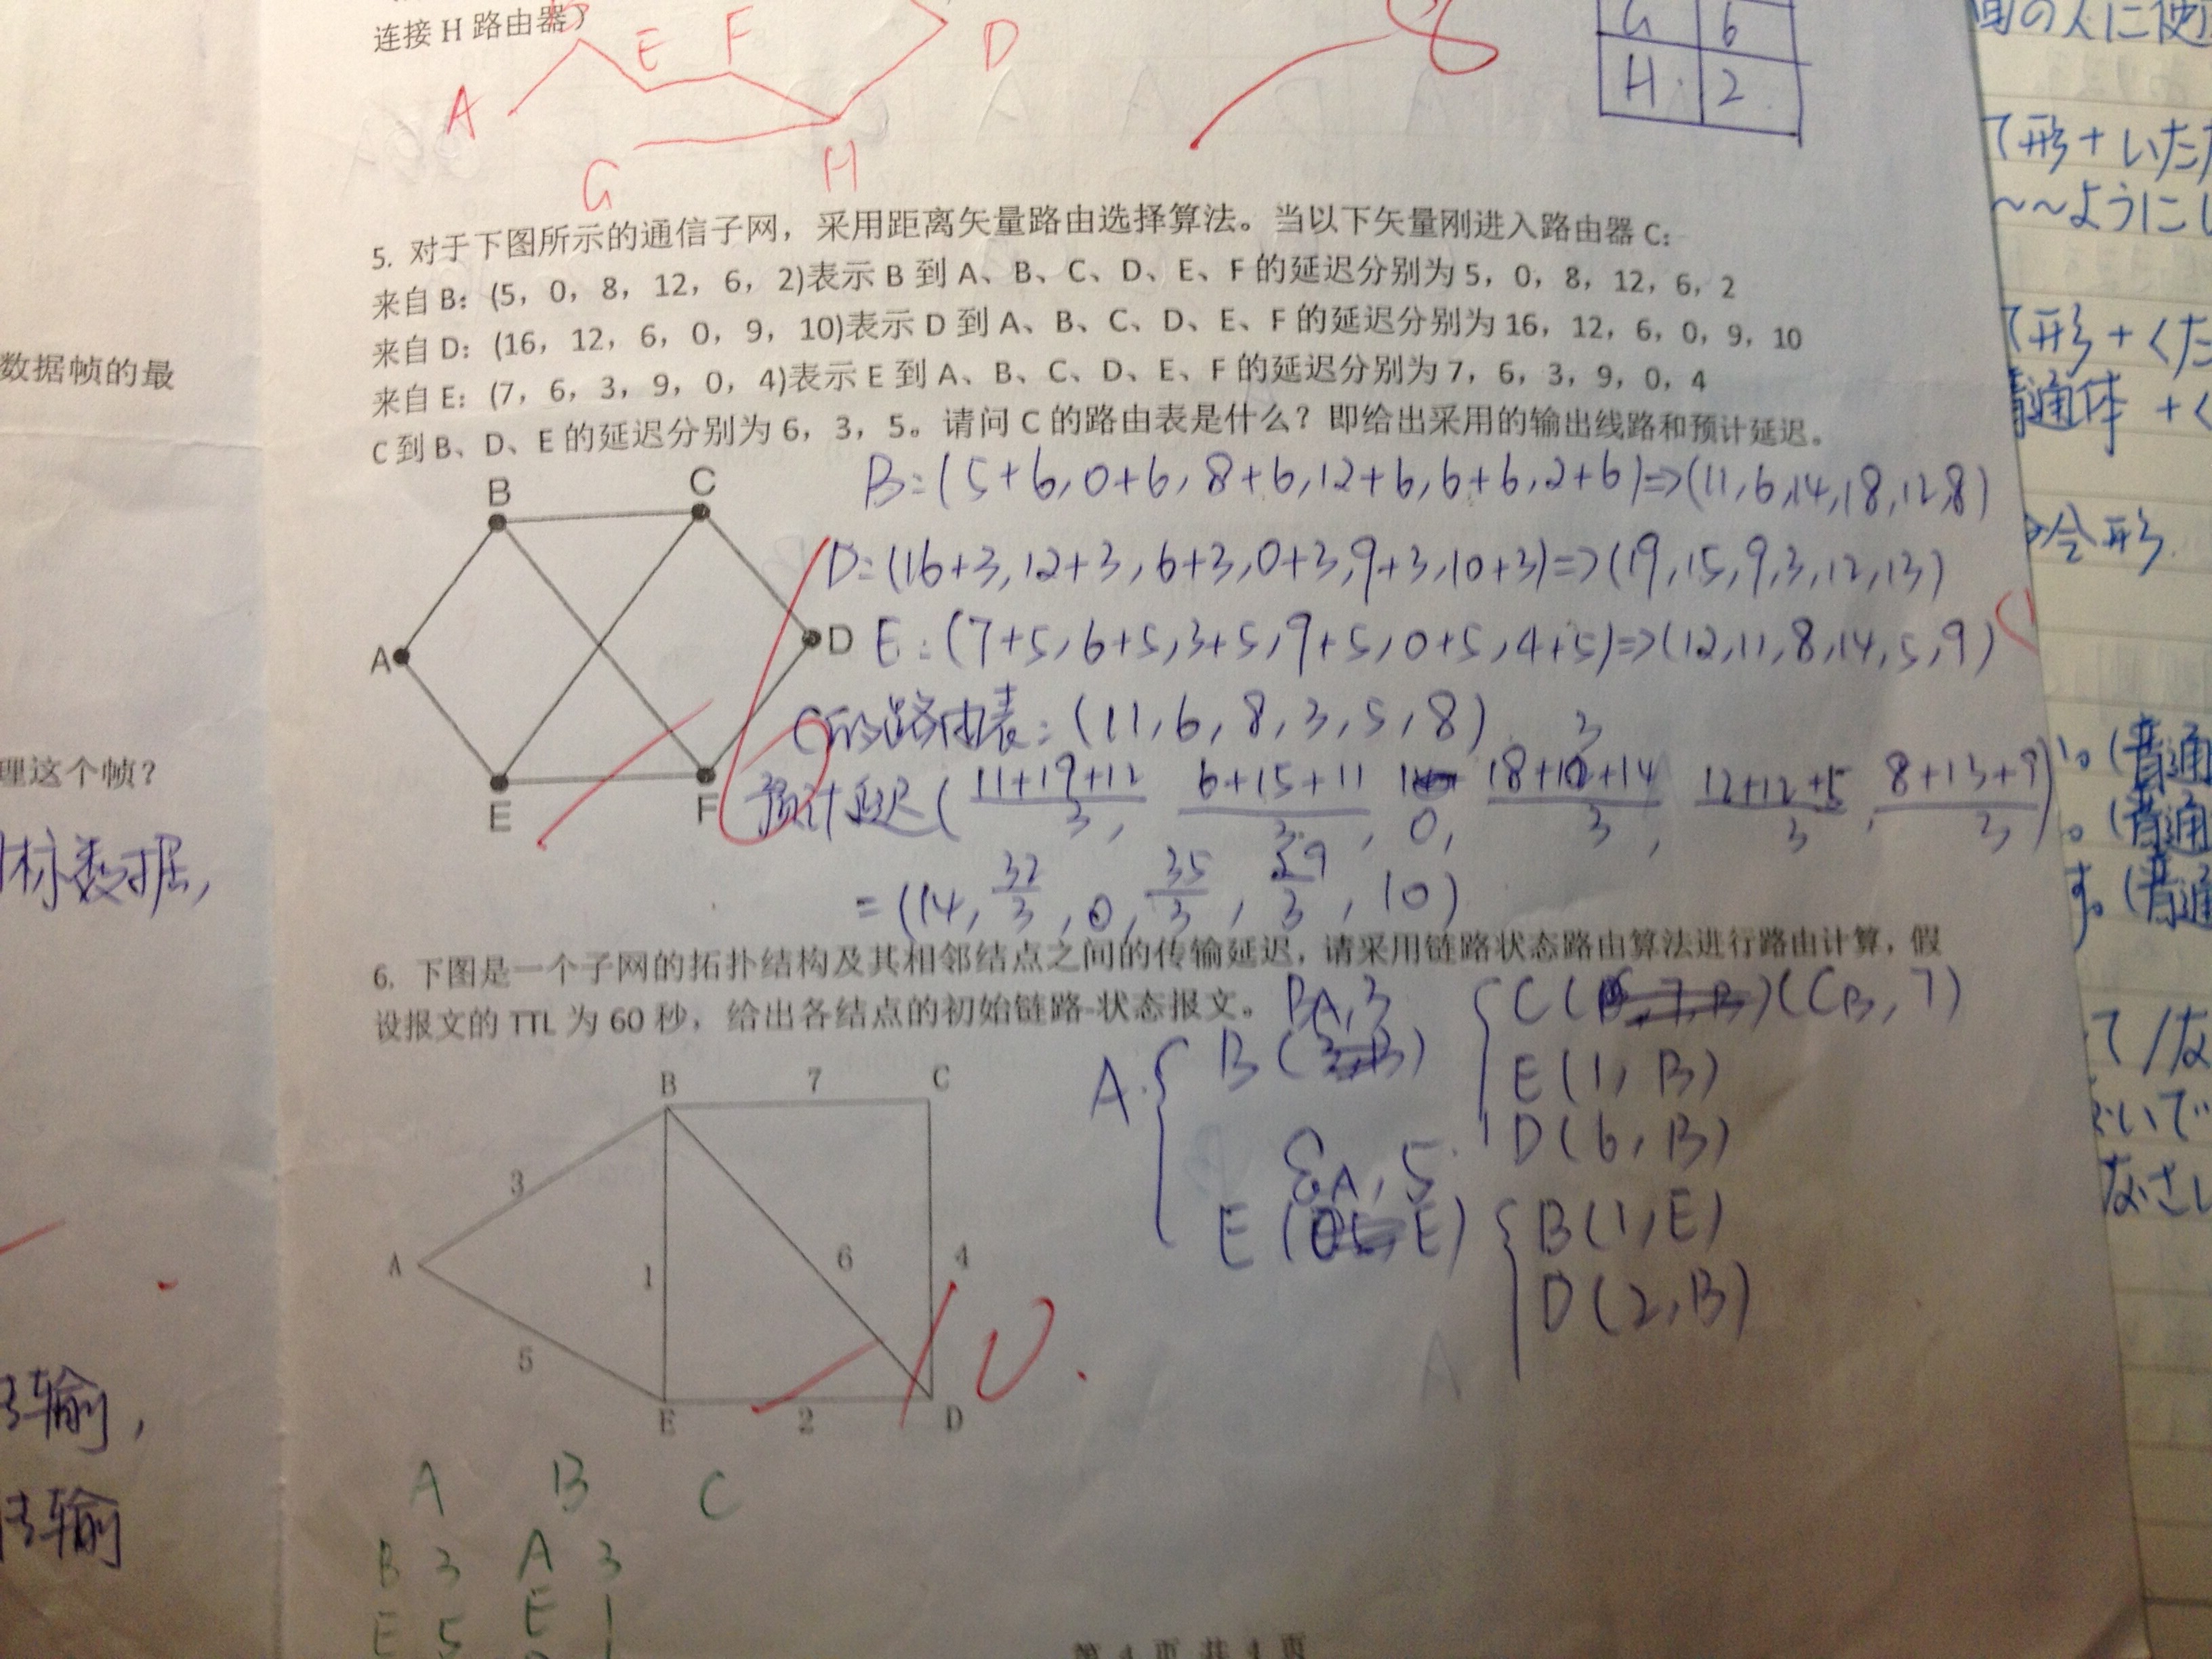 连接 H 路由器）
E F D
A
G H
8
G 6
H 2
5. 对于下图所示的通信子网，采用距离矢量路由选择算法。当以下矢量刚进入路由器 C：
来自 B：(5，0，8，12，6，2)表示 B 到 A、B、C、D、E、F 的延迟分别为 5，0，8，12，6，2
来自 D：(16，12，6，0，9，10)表示 D 到 A、B、C、D、E、F 的延迟分别为 16，12，6，0，9，10
来自 E：(7，6，3，9，0，4)表示 E 到 A、B、C、D、E、F 的延迟分别为 7，6，3，9，0，4
C 到 B、D、E 的延迟分别为 6，3，5。请问 C 的路由表是什么？即给出采用的输出线路和预计延迟。
B C
A D
E F
B=(5+6,0+6,8+6,12+6,6+6,2+6)=>(11,6,14,18,12,8)
D=(16+3,12+3,6+3,0+3,9+3,10+3)=>(19,15,9,3,12,13)
E:(7+5,6+5,3+5,9+5,0+5,4+5)=>(12,11,8,14,5,9)
C的路由表:(11,6,8,3,5,8)
预计延迟(11+19+12/3, 6+15+11/3, 0, 18+3+14/3, 12+12+5/3, 8+13+9/3)
=(14, 32/3, 0, 35/3, 29/3, 10)
6. 下图是一个子网的拓扑结构及其相邻结点之间的传输延迟，请采用链路状态路由算法进行路由计算，假
设报文的 TTL 为 60 秒，给出各结点的初始链路-状态报文。
B 7 C
3
A 1 6 4
5
E 2 D
BA,3
A { B
C (CB,7)
E(1,B)
D(6,B)
EA,5
E
B(1,E)
D(2,B)
A B C
B 3 A 3
E 5 E 1
第 4 页 共 4 页
数据帧的最
理这个帧？
标数据,
传输,
传输
て形+いただ
～～ようにし
て形+くだ
普通体+く
命令形
(普通
(普通
す。(普通
なさい